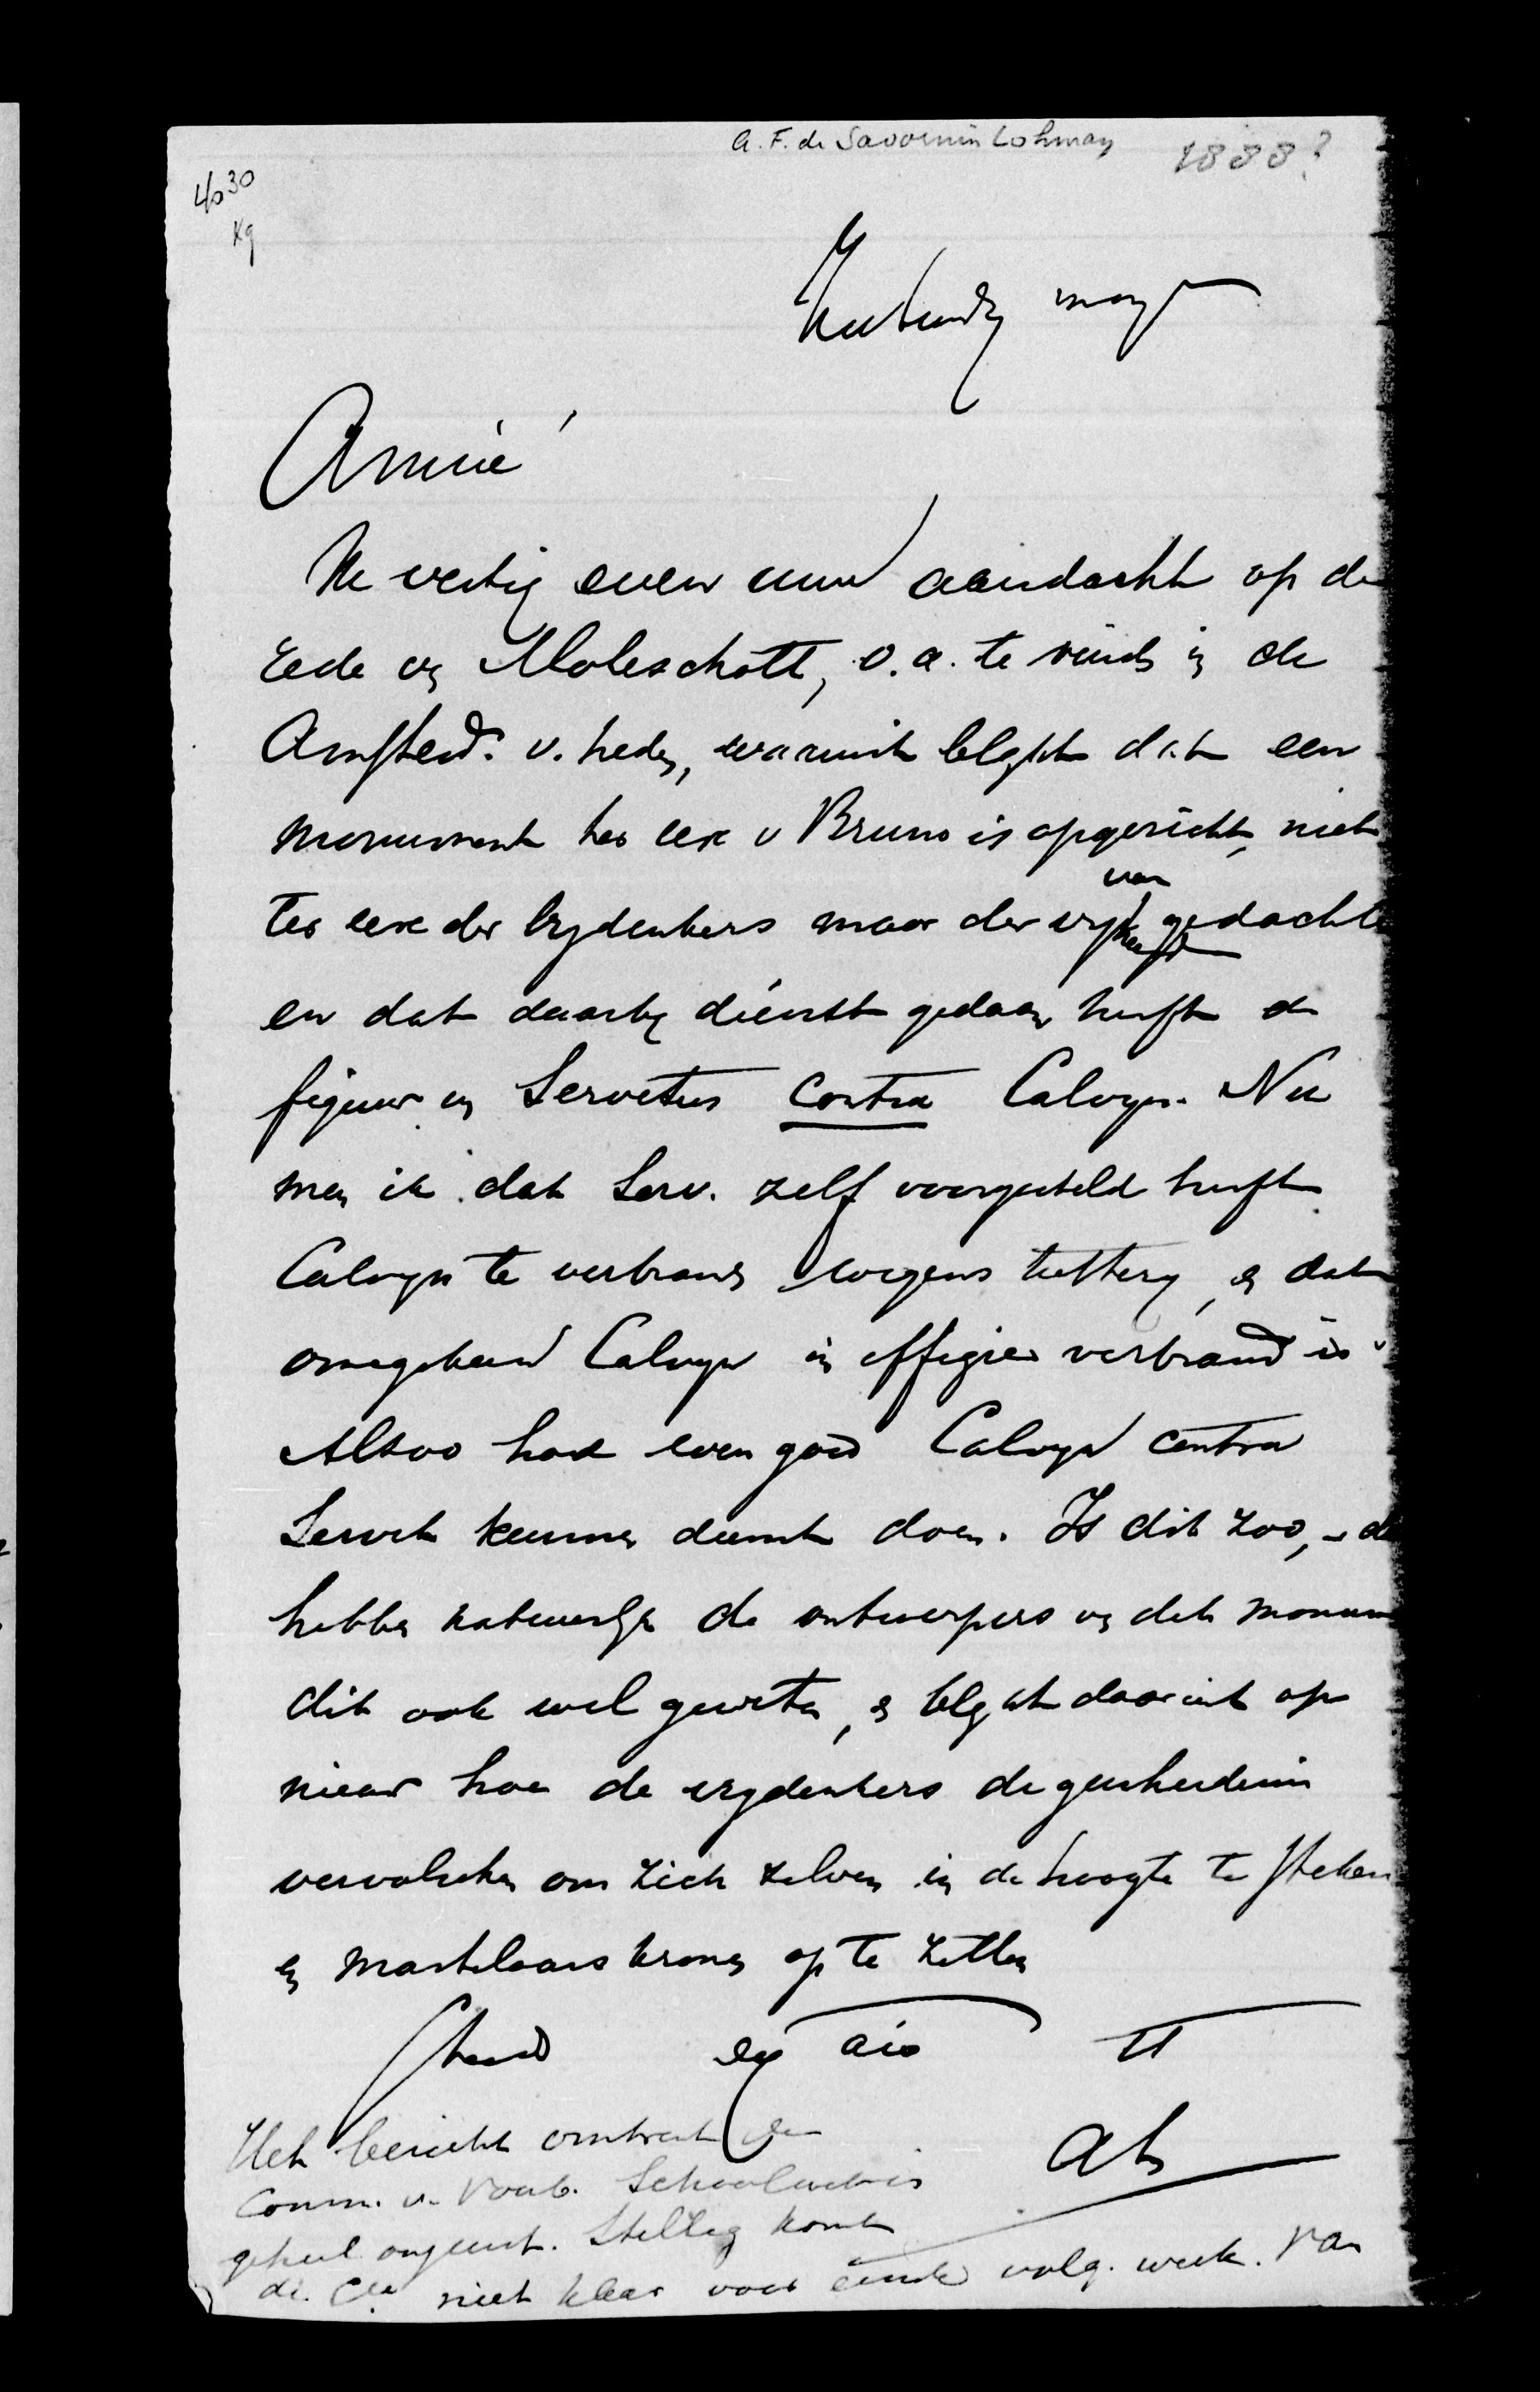 A. F. de Savornin Lohman 1888?
4030
Kg
Amice
Ik vestig even uw aandacht op de
rede v. Moleschott, o.a. te vinden in de
Amsterd. v. heden, waaruit blijkt dat een
monument ter eere v Bruno is opgericht, niet
ter eere der vrijdenkers maar der vrijheid van gedachte
en dat daarbij dienst gedaan heeft de
figuur v. Servetus contra Calvijn. Nu
meen ik dat Serv. zelf voorgesteld heeft
Calvijn te verbranden wegens ketterij, en dat
omgekeerd Calvijn in effigie verbrand is.
Alzoo had even goed Calvijn contra
Servet kunnen dienst doen. Is dit zoo, - dan
hebben natuurlijk de ontwerpers v. dat monum
dit ook wel geweten, en blijkt daaruit op
nieuw hoe de vrijdenkers de geschiedenis
vervalschen om zich zelven in de hoogte te steken
en martelaarskronen op te zetten
tt
Het bericht omtrent de
Comm. v. Voorb. Schoolwet is
geheel onjuist. Stellig komt
de Cie niet klaar voor einde volg. week. Van